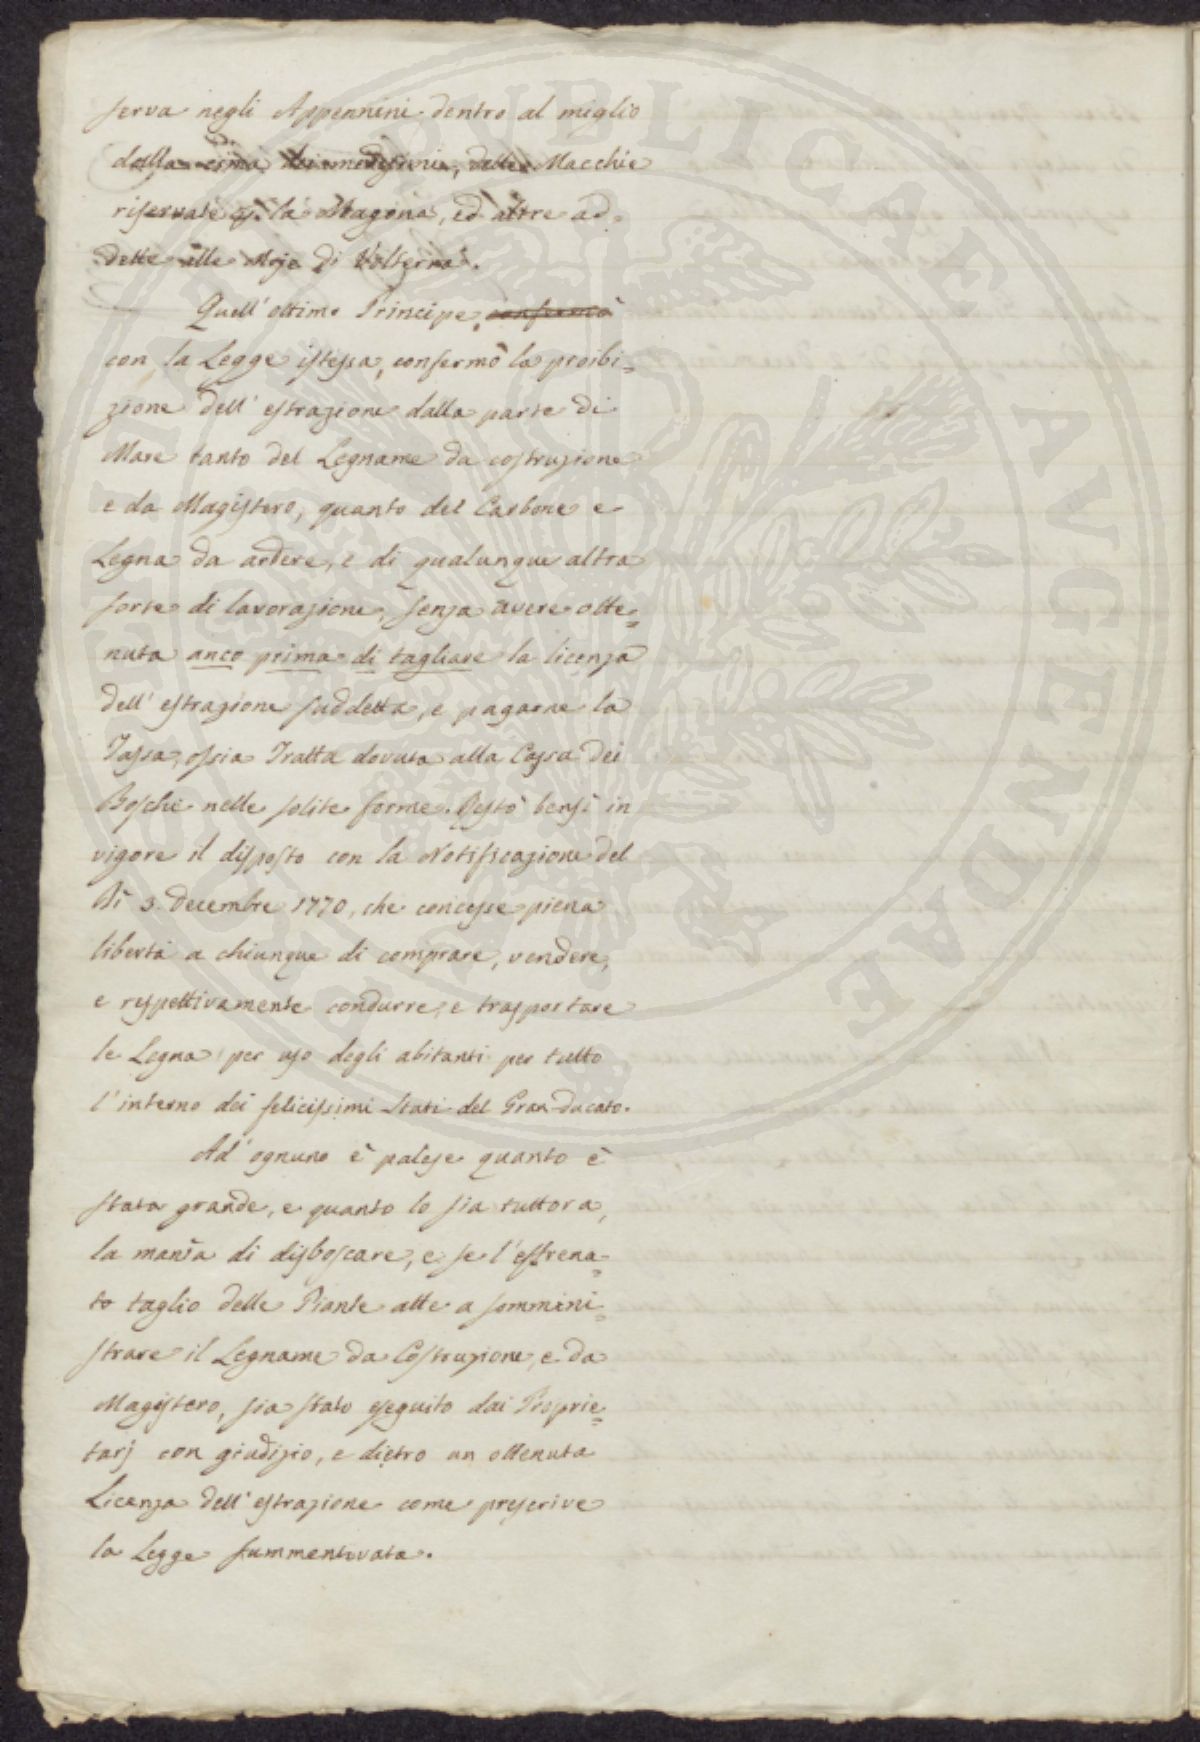 serva negli Appennini dentro al miglio
dalla cima dei medesimi, delle Macchie
riservate p. la Magona, ed altre ad=
dette alle Moje di Volterra.
Quell'ottimo Principe, confermò
con la Legge istessa, confermò la proibi=
zione dell'estrazione dalla parte di
Mare tanto del Legname da costruzione
e da Magistero, quanto del Carbone e
Legna da ardere, e di qualunque altra
sorte di lavorazione, senza avere otte=
nuta anco prima di tagliare la licenza
dell'estrazione suddetta, e pagarne la
Tassa, ossia Tratta dovuta alla Cassa dei
Boschi nelle solite forme. Restò bensì in
vigore il disposto con la Notificazione del
Dì 3. Decembre 1770, che concesse piena
libertà a chiunque di comprare, vendere,
e respettivamente condurre, e trasportare
le Legna per uso degli abitanti per tutto
l'interno dei felicissimi Stati del Gran-ducato.
Ad'ognuno è palese quanto è
stata grande, e quanto lo sia tuttora,
la manìa di disboscare, e se l'esfrena=
to taglio delle Piante atte a sommini=
strare il Legname da Costruzione, e da
Magistero, sia stato eseguito dai Proprie=
tarj con giudizio, e dietro un ottenuta
Licenza dell'estrazione come prescrive
la Legge summentovata.